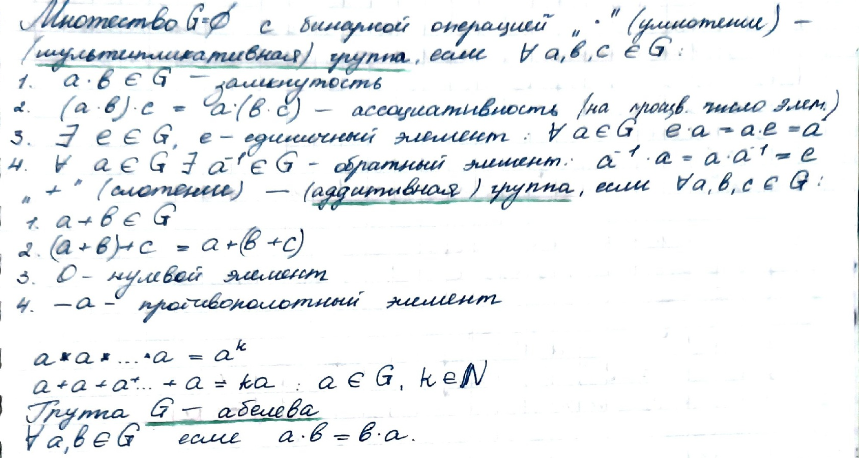 Множество G=∅ с бинарной операцией „·" (умножение) –
(мультипликативная) группа, если ∀ a, b, c ∈ G :
1. a·b ∈ G – замкнутость
2. (a·b)·c = a·(b·c) – ассоциативность (на произв. число элем.)
3. ∃ e ∈ G, e – единичный элемент : ∀ a ∈ G e·a = a·e = a
4. ∀ a ∈ G ∃ a⁻¹ ∈ G – обратный элемент: a⁻¹·a = a·a⁻¹ = e
„+" (сложение) – (аддитивная) группа, если ∀ a, b, c ∈ G :
1. a+b ∈ G
2. (a+b)+c = a+(b+c)
3. 0 – нулевой элемент
4. –a – противоположный элемент
a·a·...·a = aᵏ
a+a+a+...+a = ka : a ∈ G, k ∈ ℕ
Группа G – абелева
∀ a, b ∈ G если a·b = b·a.